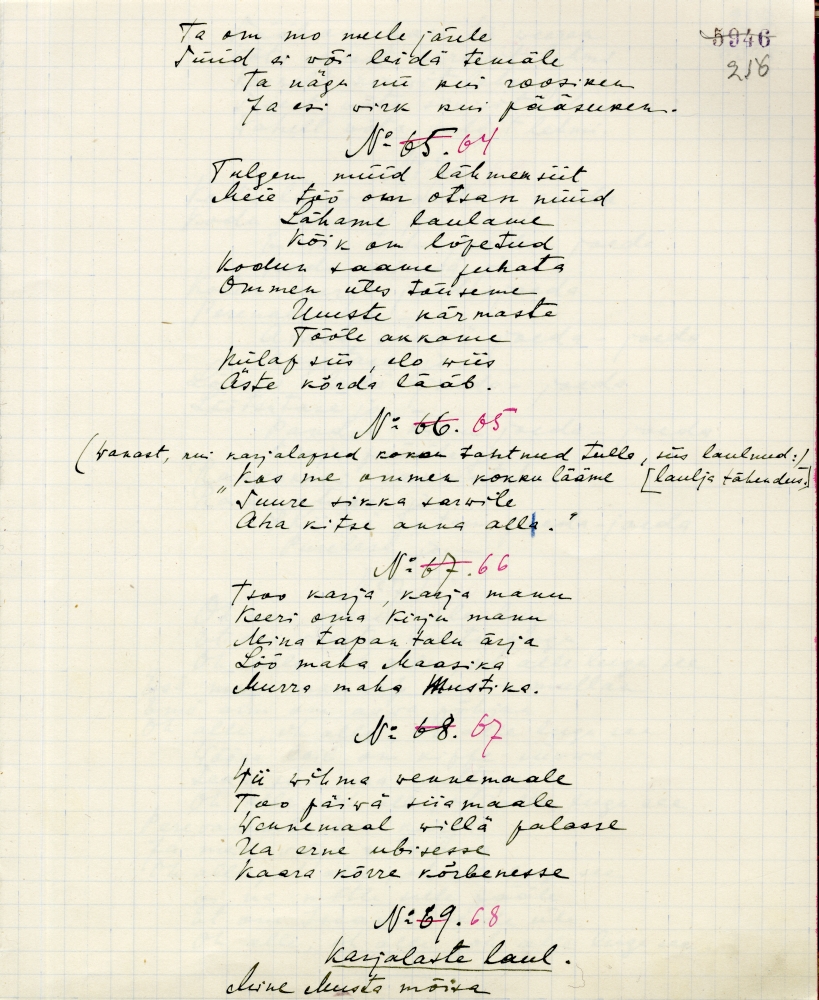 5946
216
Ta om mo meele järele
Süüd ei või leidä temäle
Ta nägu nii kui roosiken
Ja esi wirk kui pääsuken.
№ 65. 64
Tulgem nüüd lähmensiit
Meie töö om otsan nüüd
Lähame laulame
Kõik om lõpetud
Kodun saame puhata
Ommen ütes tõuseme
Uueste kärmaste
Tööle akkame
Külap siis, elo wiis
Äste kõrda lääb.
№ 66. 65
(Wanast, kui karjalapsed kokku tahtnud tulle, siis laulnud:)
„Kas me ommen kokku lääme [laulja tähendus.]
Suure sikka sarwile
Aha kitse anna alla."
№ 67. 66
Tsoo karja, karja manu
Keeri oma Kirju manu
Mina tapan talu ärja
Löö maha Maasika
Murra maha Mustika.
№ 68. 67
Wii wihma wennemaale
Too päiwä siiamaale
Wennemaal willä palasse
Ua erne ubisesse
Kaara kõrre kõrbenesse
№ 69. 68
Karjalaste laul.
Mine Musta mõisa